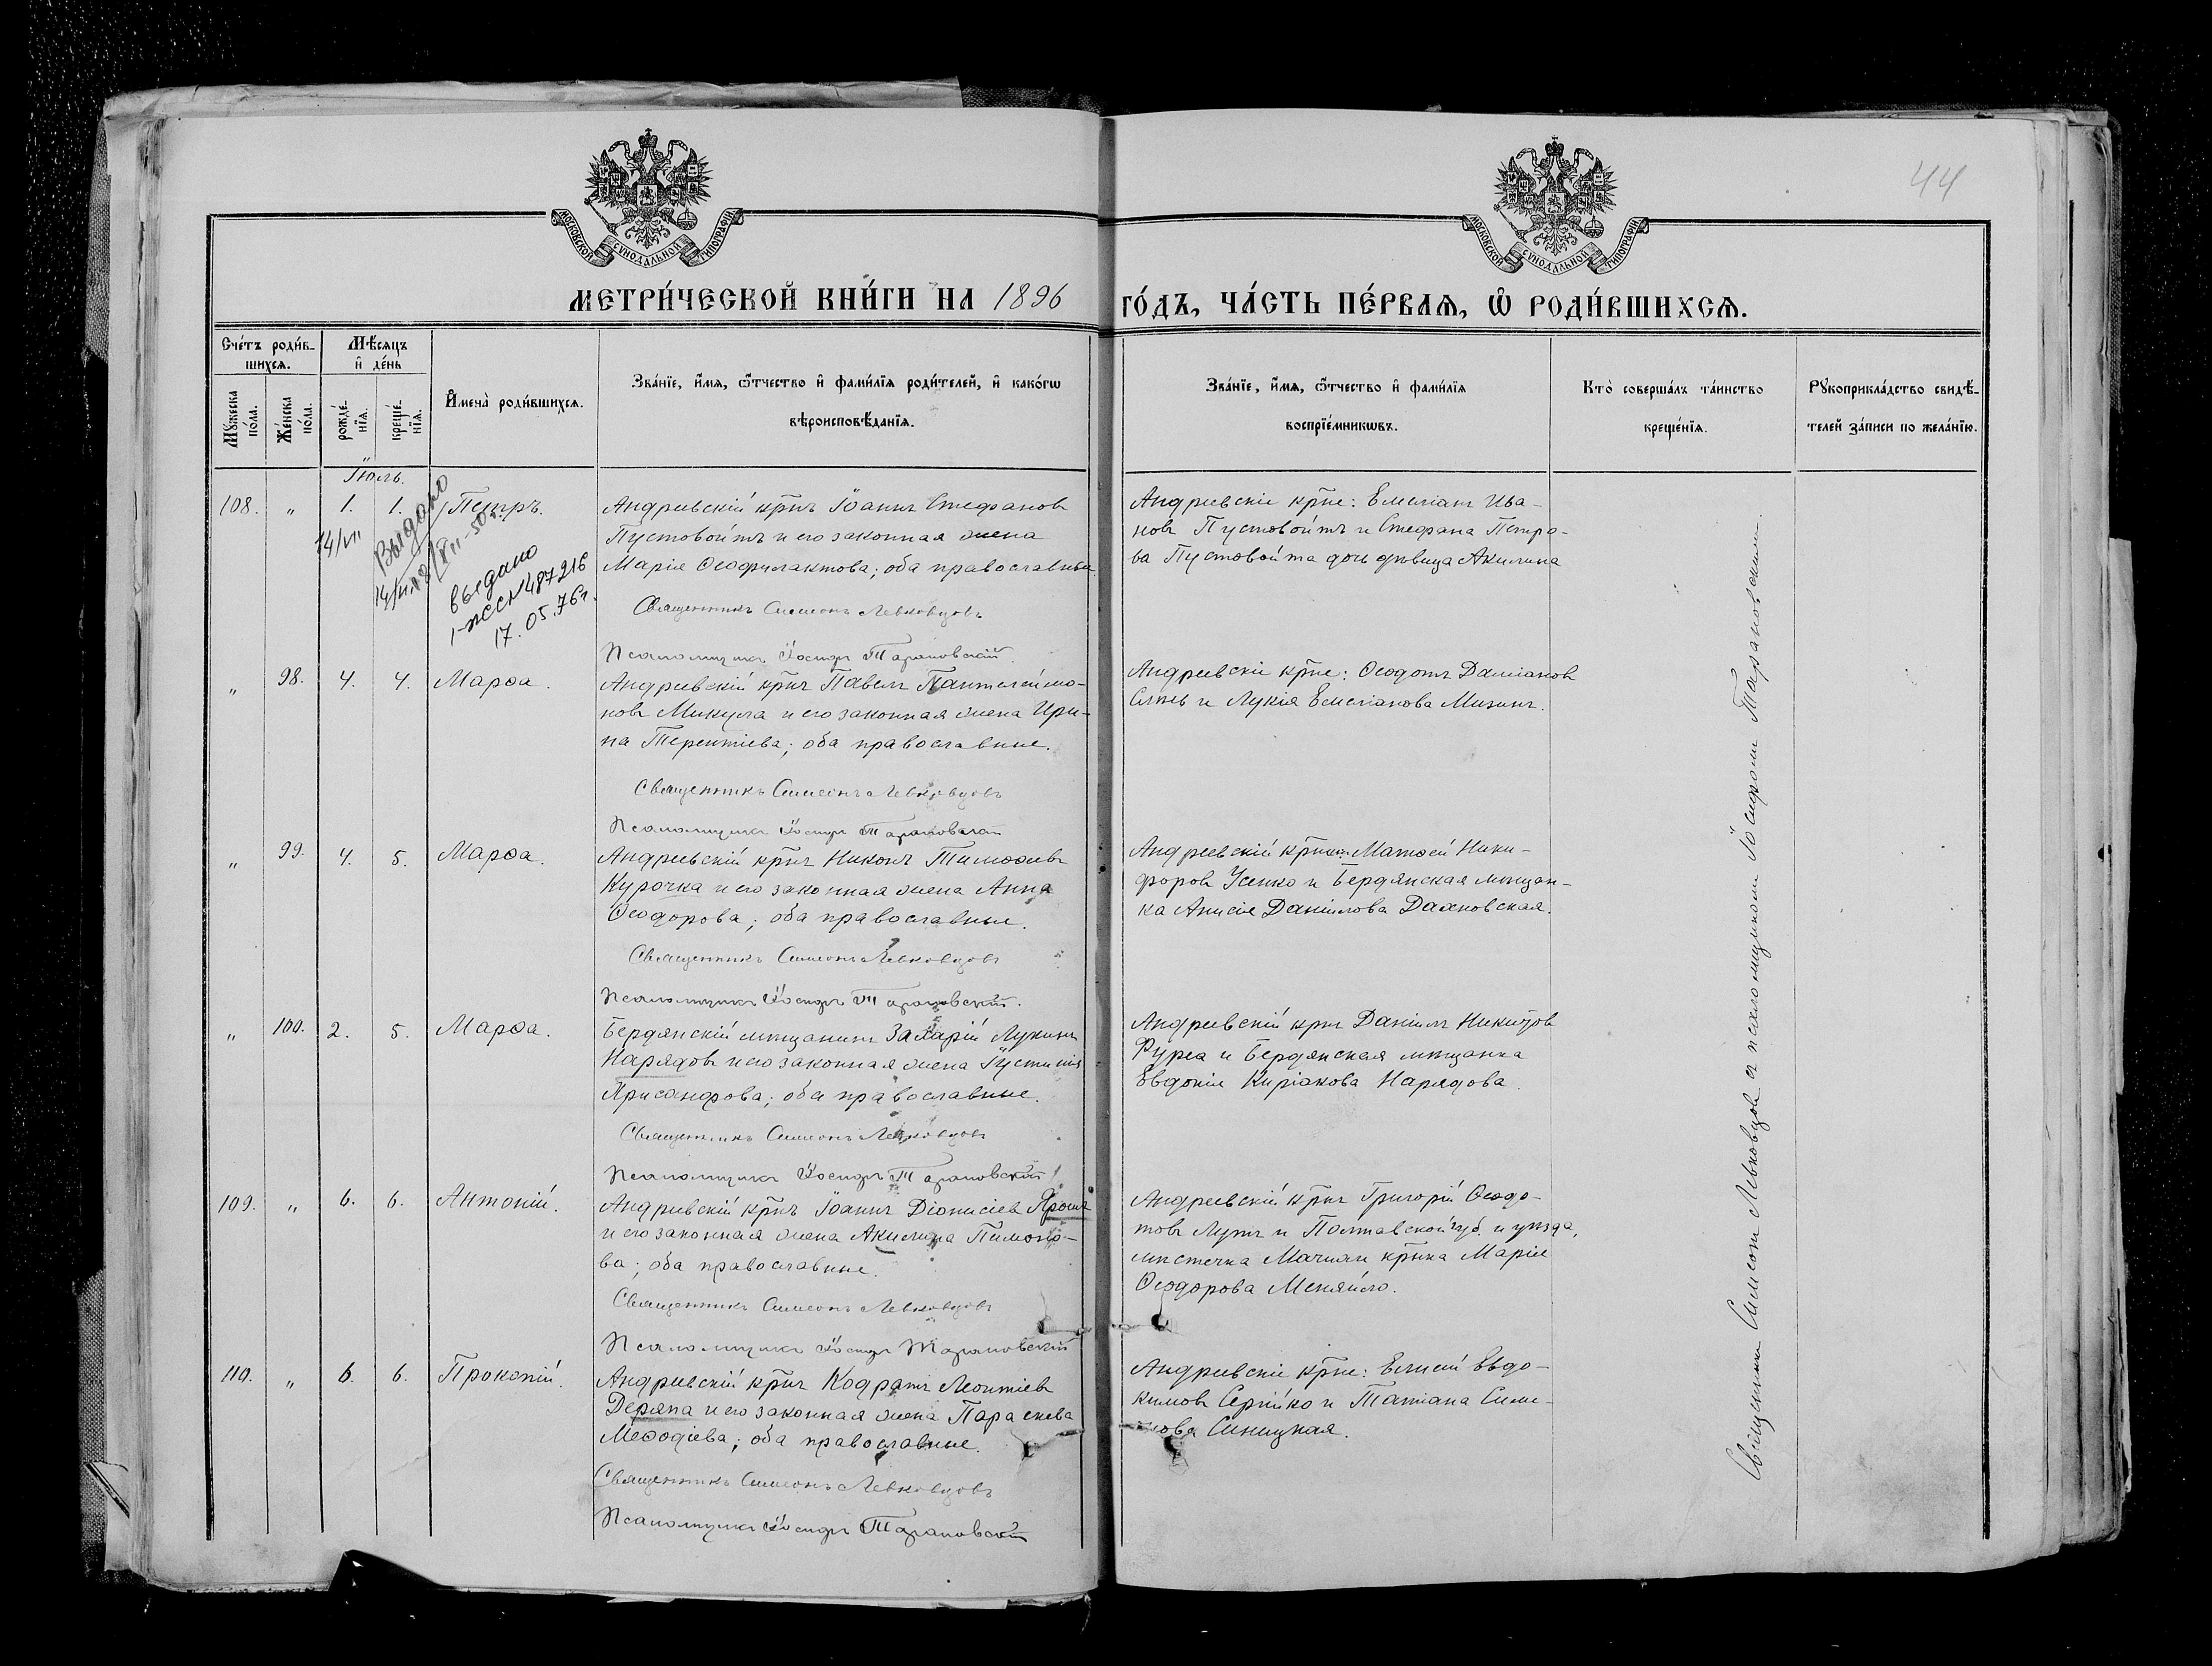 44
МОСКОВСКОЙ СѴНОДАЛЬНОЙ ТИПОГРАФІИ
МОСКОВСКОЙ СѴНОДАЛЬНОЙ ТИПОГРАФІИ
МЕТРИ́ЧЕСКОЙ КНИ́ГИ НА 1896 ГО́ДЪ, ЧА́СТЬ ПЕ́РВАЯ, Ѡ РОДИ́ВШИХСЯ.
Сче́тъ роди́в-
шихся.
Мꙋ́жеска по́ла.
Же́нска по́ла.
Мѣ́сяцъ
и҆ де́нь
рожде́-
нїя.
креще́-
нїя.
И҆мена̀ роди́вшихся.
Зва́нїе, и҆́мя, ѻ҆́тчество и҆ фами́лїя роди́телей, и҆ како́гѡ
вѣроисповѣ́данїя.
Зва́нїе, и҆́мя, ѻ҆́тчество и҆ фами́лїя
воспрїе́мникѡвъ.
Кто̀ соверша́лъ та́инство
креще́нїя.
Рꙋкоприкла́дство свидѣ́-
телей за́писи по жела́нїю.
Іюль.
108. „ 1. 1. Петръ.
14/VII
Выдано
выдано
1-ЖС №487216
17.05.76г.
Андреевскій кр̃нъ Іоаннъ Стефановъ
Пустовойтъ и его законная жена
Марія Ѳеофилактова; оба православные
Священникъ Симеонъ Левковцовъ
Псаломщикъ Іосифъ Тарановскій.
Андреевскіе кр̃не: Емеліанъ Ива-
новъ Пустовойтъ и Стефана Петро-
ва Пустовойта дочь дѣвица Акилина
„ 98. 4. 4. Марѳа.
Андреевскій кр̃нъ Павелъ Пантелеймо-
новъ Микула и его законная жена Ири-
на Терентіева; оба православные.
Священникъ Симеонъ Левковцовъ
Псаломщикъ Іосифъ Тарановскій
Андреевскіе кр̃не: Ѳеодотъ Даміановъ
и Лукія Емеліанова
„ 99. 4. 5. Марѳа.
Андреевскій кр̃нъ Никонъ Тимоѳеевъ
Курочка и его законная жена Анна
Ѳеодорова; оба православные.
Священникъ Симеонъ Левковцовъ
Псаломщикъ Іосифъ Тарановскій.
Андреевскій Матѳей Ники-
форовъ Усенко и Бердянская мѣщан-
ка Анисія Даніилова Дахновская.
„ 100. 2. 5. Марѳа.
Бердянскій мѣщанинъ Захарій Лукинъ
Нарядовъ и его законная жена Іустинія
Хрисанфова; оба православные.
Священникъ Симеонъ Левковцовъ
Псаломщикъ Іосифъ Тарановскій
Андреевскій крнъ Даніилъ Никитовъ
Фурса и Бердянская мѣщанка
Евдокія Киріакова Нарядова.
109. „ 6. 6. Антоній.
Андреевскій кр̃нъ Іоаннъ Діонисіевъ Ярошъ
и его законная жена Акилина Пимоно-
ва; оба православные.
Священникъ Симеонъ Левковцовъ
Псаломщикъ Іосифъ Тарановскій
Андреевскій кр̃нъ Григорій Ѳеодо-
товъ и Полтавской губ. и уѣзда,
мѣстечка Мачихи кр̃нка Марія
Ѳеодорова Меняйло.
110. „ 6. 6. Прокопій.
Андреевскій кр̃нъ Кодратъ Леонтіевъ
Деряпа и его законная жена Параскева
Меѳодіева; оба православные.
Священникъ Симеонъ Левковцовъ
Псаломщикъ Іосифъ Тарановскій
Андреевскіе кр̃не: Елисей Евдо-
кимовъ Сергійко и Татіана Симе-
онова Синицкая.
Священникъ Симеонъ Левковцовъ съ псаломщикомъ Іосифомъ Тарановскимъ.